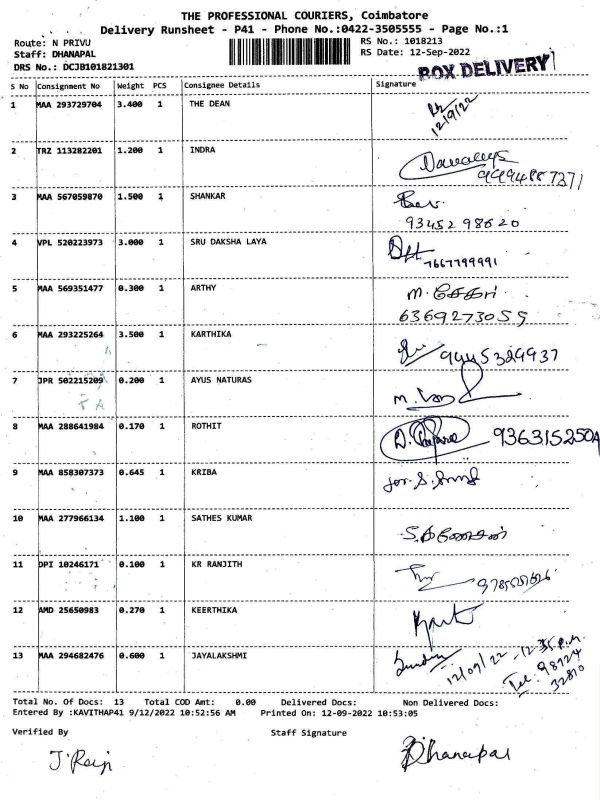 THE PROFESSIONAL COURIERS, Coimbatore
Delivery Runsheet - P41 - Phone No.:0422-3505555 - Page No.:1
Route: N PRIVU
RS No.: 1018213
Staff: DHANAPAL
RS Date: 12-Sep-2022
DRS No.: DCJB101821301
BOX DELIVERY
S No Consignment No Weight PCS Consignee Details Signature
1 MAA 293729704 3.400 1 THE DEAN
12/9/22
2 TRZ 113282201 1.200 1 INDRA
9994887371
3 MAA 567059870 1.500 1 SHANKAR
9345298620
4 VPL 520223973 3.000 1 SRU DAKSHA LAYA
7667799991
5 MAA 569351477 0.300 1 ARTHY
m. சேகர்
6369273059
6 MAA 293225264 3.500 1 KARTHIKA
9445329937
7 JPR 502215209 0.200 1 AYUS NATURAS
8 MAA 288641984 0.170 1 ROTHIT
9 MAA 858307373 0.645 1 KRIBA
10 MAA 277966134 1.100 1 SATHES KUMAR
S. கணேசன்
11 DPI 10246171 0.100 1 KR RANJITH
12 AMD 25650983 0.270 1 KEERTHIKA
13 MAA 294682476 0.600 1 JAYALAKSHMI
12/09/22 - 12-35 P.M.
Tel: 98424
32810
Total No. Of Docs: 13 Total COD Amt: 0.00 Delivered Docs: Non Delivered Docs:
Entered By :KAVITHAP41 9/12/2022 10:52:56 AM Printed On: 12-09-2022 10:53:05
Verified By Staff Signature
Dhanapal